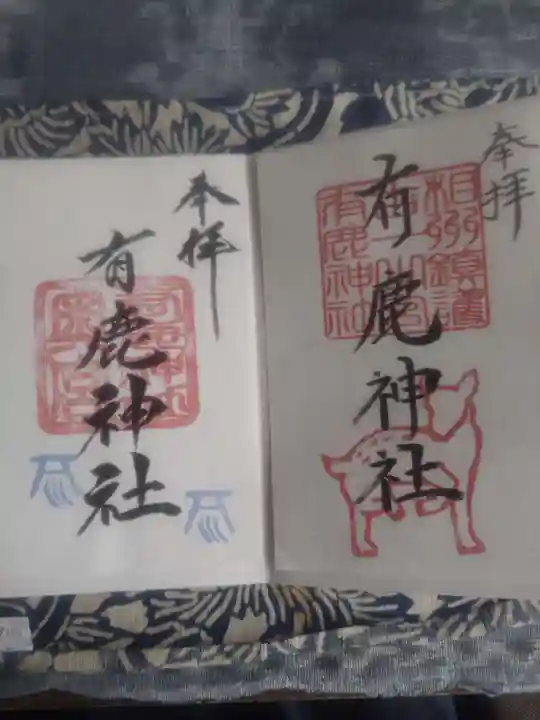 奉拝
有鹿神社
奉拝
有鹿神社
有鹿神社